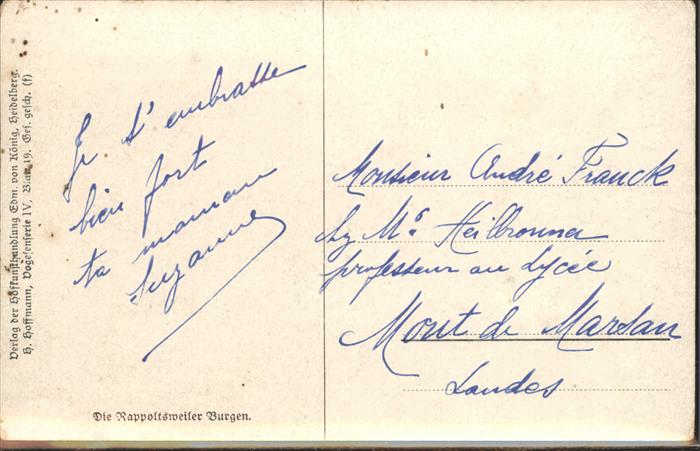 Je t'embrasse
bien fort
ta maman
Suzanne
Monsieur André Franck
Mr Heilbronner
professeur au Lycée
Mont de Marsan
Landes
Verlag der Hofkunsthandlung Edm. von König, Heidelberg.
H. Hoffmann, Vogesenserie IV, Blatt 19. Ges. gesch. (f)
Die Rappoltsweiler Burgen.